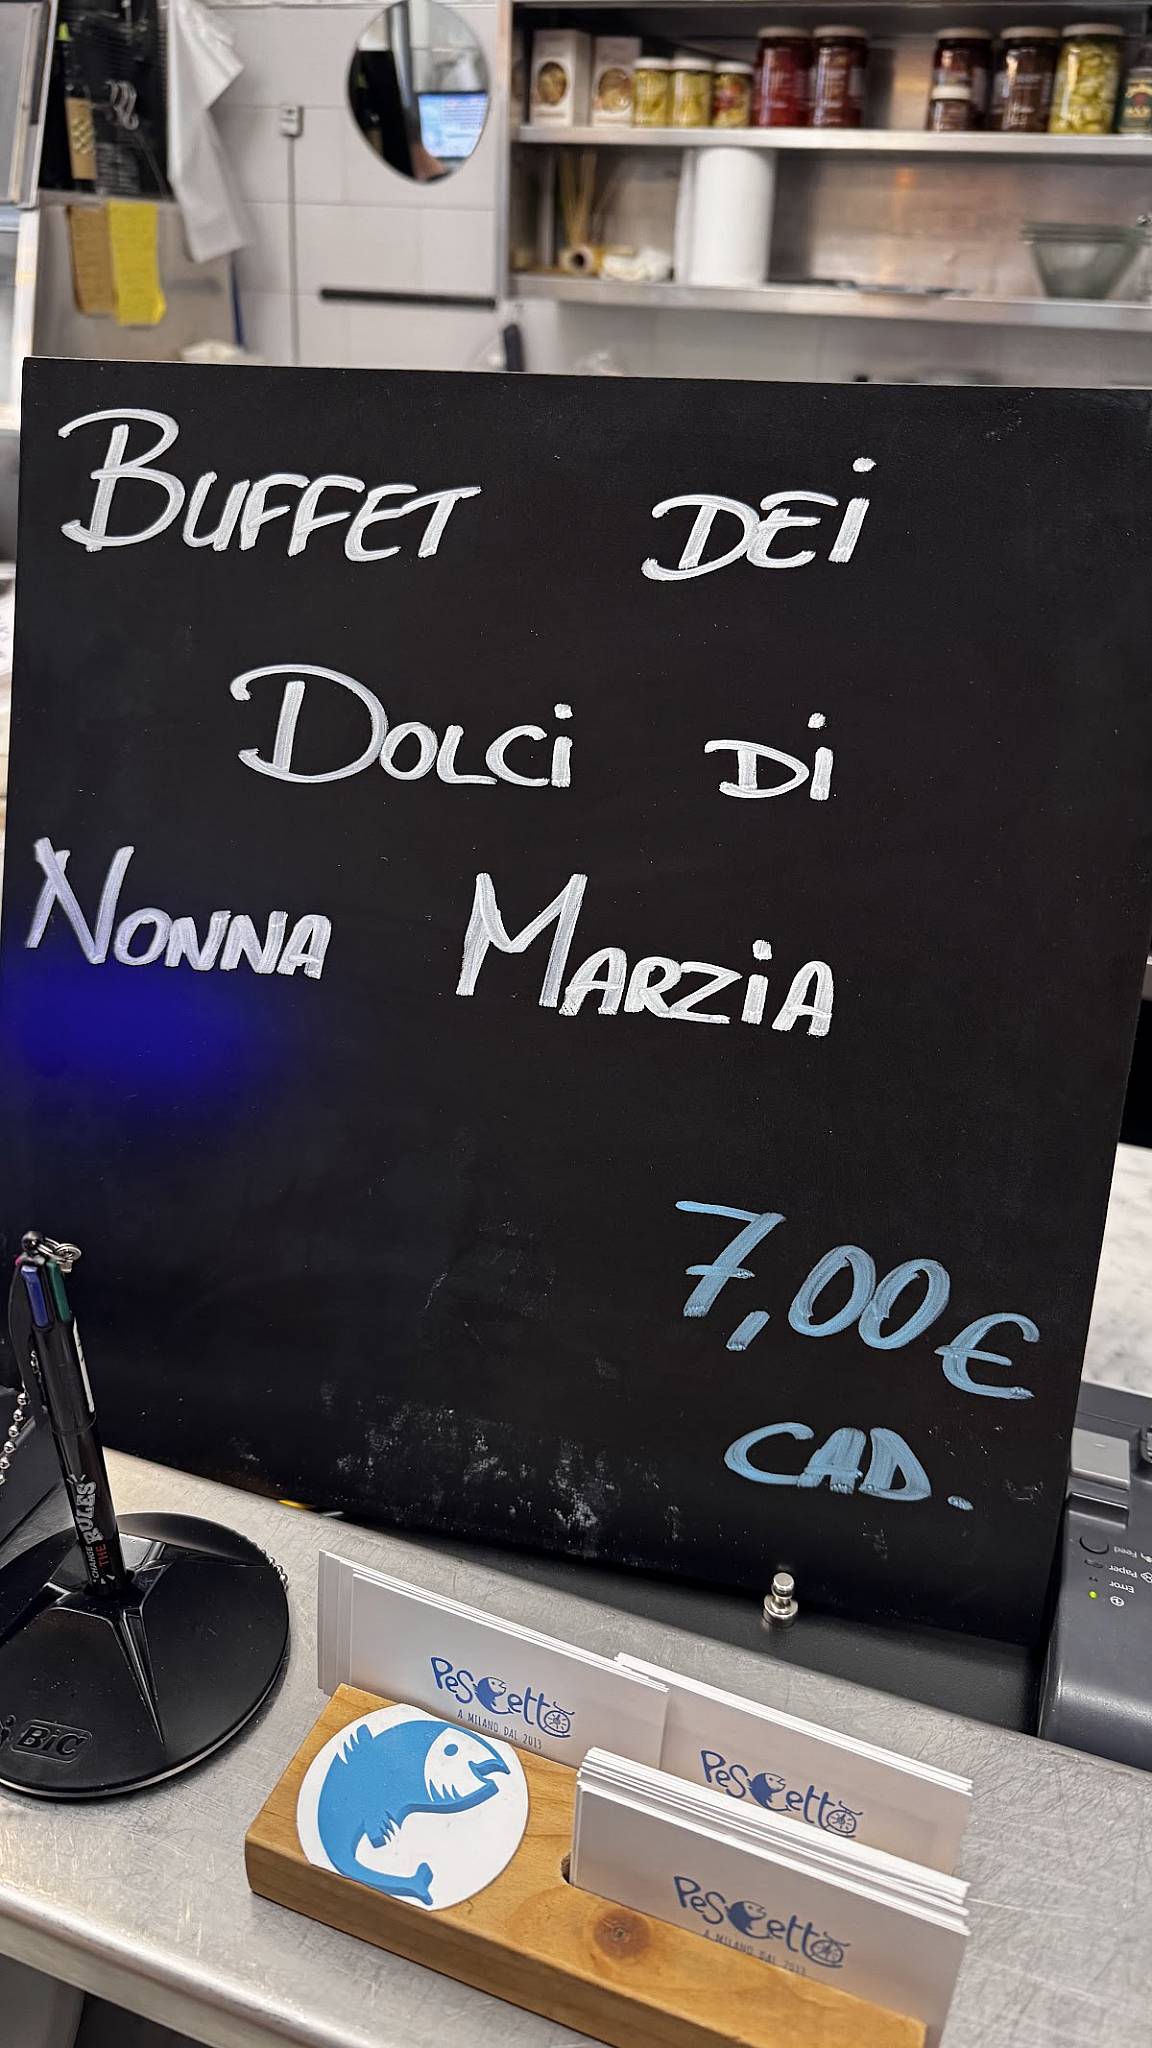 BUFFET DEI
DOLCI DI
NONNA MARZIA
7,00€
CAD.
CHANGE
THE RULES
BIC
PESCetto
A MILANO DAL 2013
PESCetto
PESCetto
A MILANO DAL 2013
Feed
Paper
Error